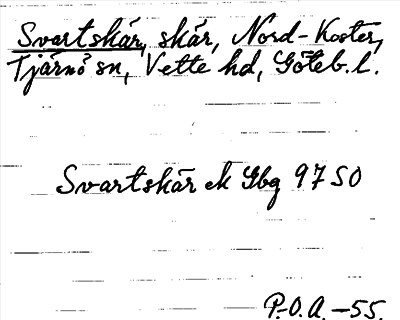 Svartskär, skär, Nord-Koster,
Tjärnö sn, Vette hd, Göteb. l.
Svartskär ek Gbg 97 SO
P.-O.A. -55.